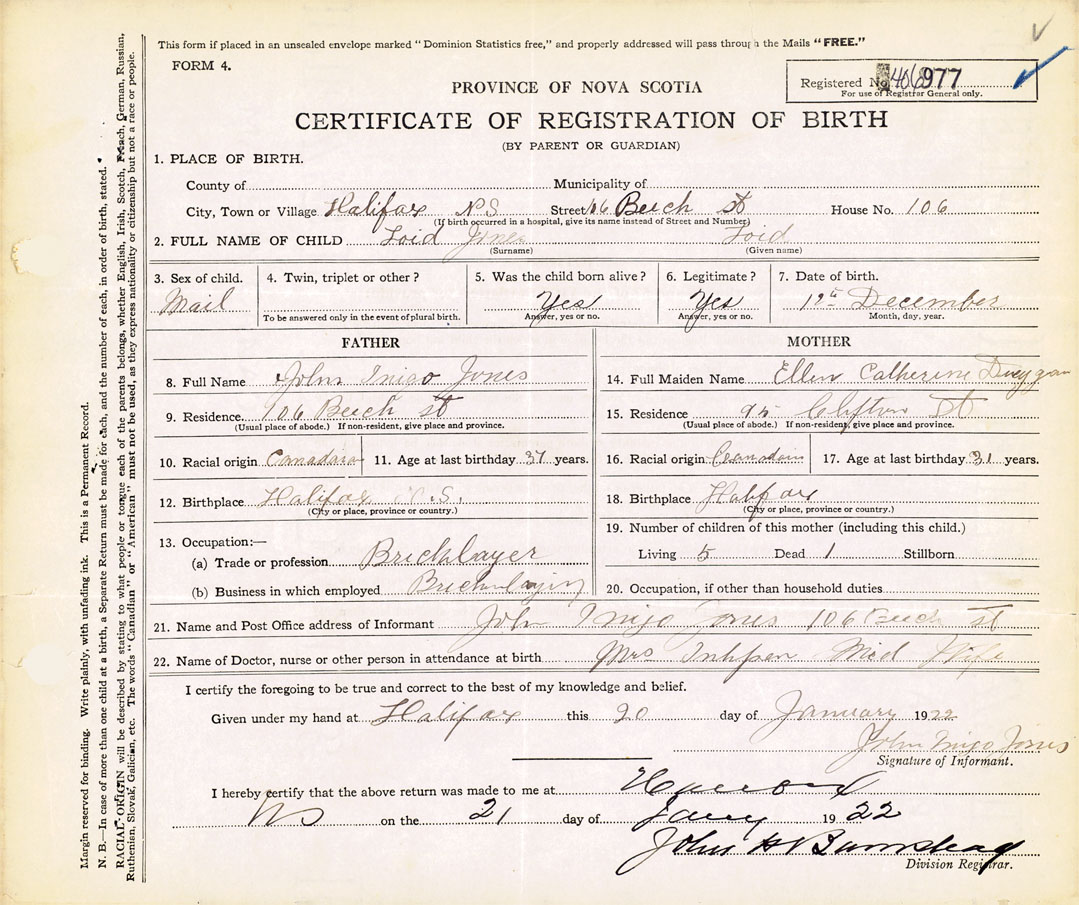 This form if placed in an unsealed envelope marked "Dominion Statistics free," and properly addressed will pass through the Mails "FREE."
FORM 4.
Registered No. 406977
For use of Registrar General only.
PROVINCE OF NOVA SCOTIA
CERTIFICATE OF REGISTRATION OF BIRTH
(BY PARENT OR GUARDIAN)
1. PLACE OF BIRTH.
County of Municipality of
City, Town or Village Halifax N S Street 106 Beech St House No. 106
(If birth occurred in a hospital, give its name instead of Street and Number)
2. FULL NAME OF CHILD Loid Jones Loid
(Surname) (Given name)
3. Sex of child. 4. Twin, triplet or other? 5. Was the child born alive? 6. Legitimate? 7. Date of birth.
Mail Yes Yes December
To be answered only in the event of plural birth. Answer, yes or no. Answer, yes or no. Month, day, year.
FATHER MOTHER
8. Full Name John Inigo Jones 14. Full Maiden Name Ellen Catherine
9. Residence. 106 Beech St 15. Residence 95 Clifton St
(Usual place of abode.) If non-resident, give place and province. (Usual place of abode.) If non-resident, give place and province.
10. Racial origin Canadain 11. Age at last birthday 37 years. 16. Racial origin Canadain 17. Age at last birthday 31 years.
12. Birthplace Halifax N.S. 18. Birthplace Halifax
(City or place, province or country.) (City or place, province or country.)
19. Number of children of this mother (including this child.)
13. Occupation:—
(a) Trade or profession Bricklayer Living 5 Dead 1 Stillborn
(b) Business in which employed Bricklaying 20. Occupation, if other than household duties
21. Name and Post Office address of Informant John Inigo Jones 106 Beech St
22. Name of Doctor, nurse or other person in attendance at birth Mrs Inkpen Mid Wife
I certify the foregoing to be true and correct to the best of my knowledge and belief.
Given under my hand at Halifax this 20 day of January 1922
John Inigo Jones
Signature of Informant.
I hereby certify that the above return was made to me at
NS on the 21 day of Jany 1922
John H Barnstead
Division Registrar.
Margin reserved for binding. Write plainly, with unfading ink. This is a Permanent Record.
N. B.—In case of more than one child at a birth, a Separate Return must be made for each, and the number of each, in order of birth, stated.
RACIAL ORIGIN will be described by stating to what people or tongue each of the parents belongs, whether English, Irish, Scotch, French, German, Russian,
Ruthenian, Slovak, Galician, etc. The words "Canadian" or "American" must not be used, as they express nationality or citizenship but not a race or people.